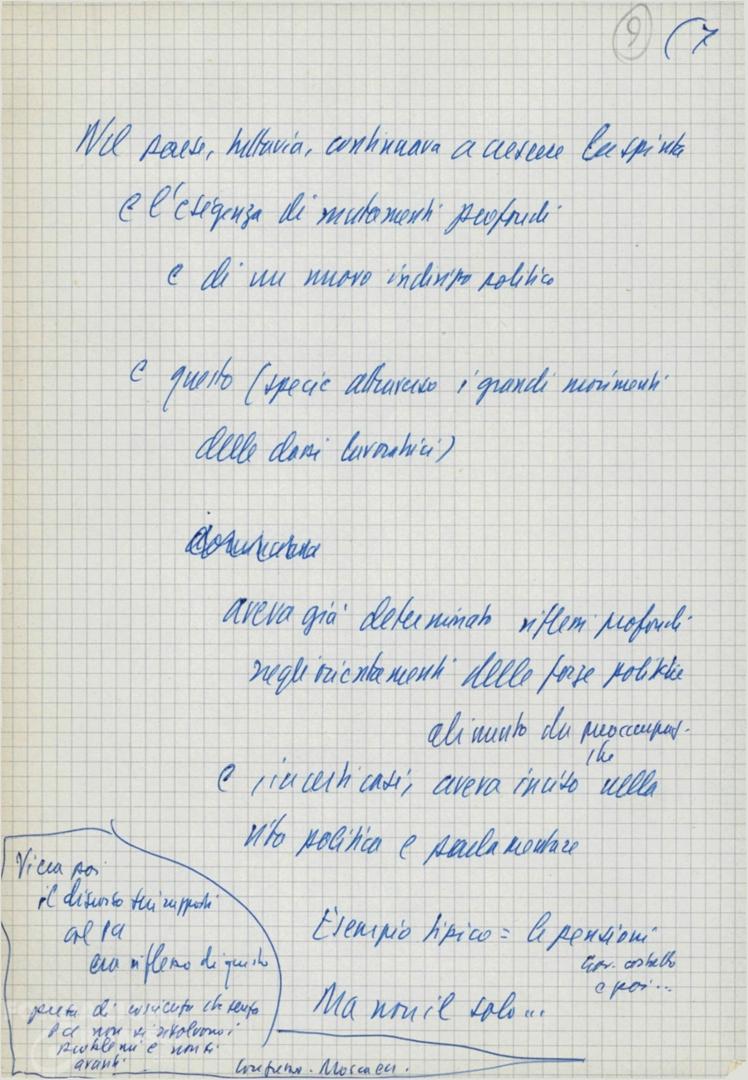 9 (7
Nel paese, tuttavia, continuava a crescere la spinta
e l'esigenza di mutamenti profondi
e di un nuovo indirizzo politico
e questo (specie attraverso i grandi movimenti
delle classi lavoratrici)
aveva già determinato riflessi profondi
negli orientamenti delle forze politiche
alimento da preoccupaz.
che
e, in certi casi, aveva inciso nella
vita politica e parlamentare
Esempio tipico = le pensioni
Gov. costretto
e poi...
Ma non il solo...
Viene poi
il discorso sui rapporti
col PCI
era riflesso di questo
presa di coscienza che senza
PCI non si risolvono i
problemi e non si
avanti.